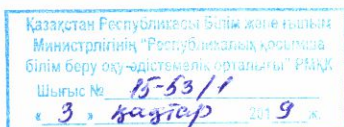 Қазақстан Республикасы Білім және ғылым
Министрлігінің "Республикалық қосымша
білім беру оқу-әдістемелік орталығы" РМҚК
Шығыс № 15-53/1
« 3 » қаңтар 2019 ж.